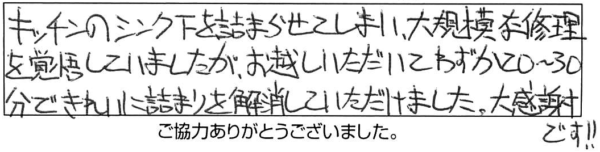 キッチンのシンク下を詰まらせてしまい、大規模な修理
を覚悟していましたが、お越しいただいてわずか20~30
分できれいに詰まりを解消していただけました。大感謝
です!!
ご協力ありがとうございました。